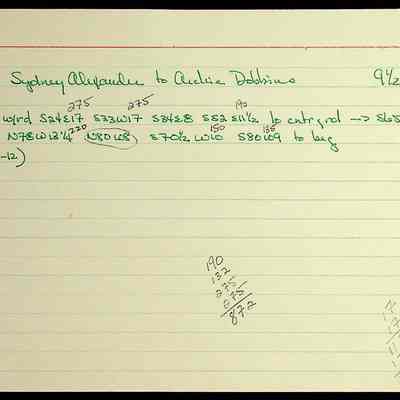 Sydney Alexander to Archie Dobbins 9½
275 275 190
wyrd S24E17 S33W17 S34E8 S52 E11½ to cntr grd → S65
220 150 135
N78W13¼ N80W8 S70½ W10 S80W9 to beg
-12)
190
132
275
275
872
17
17